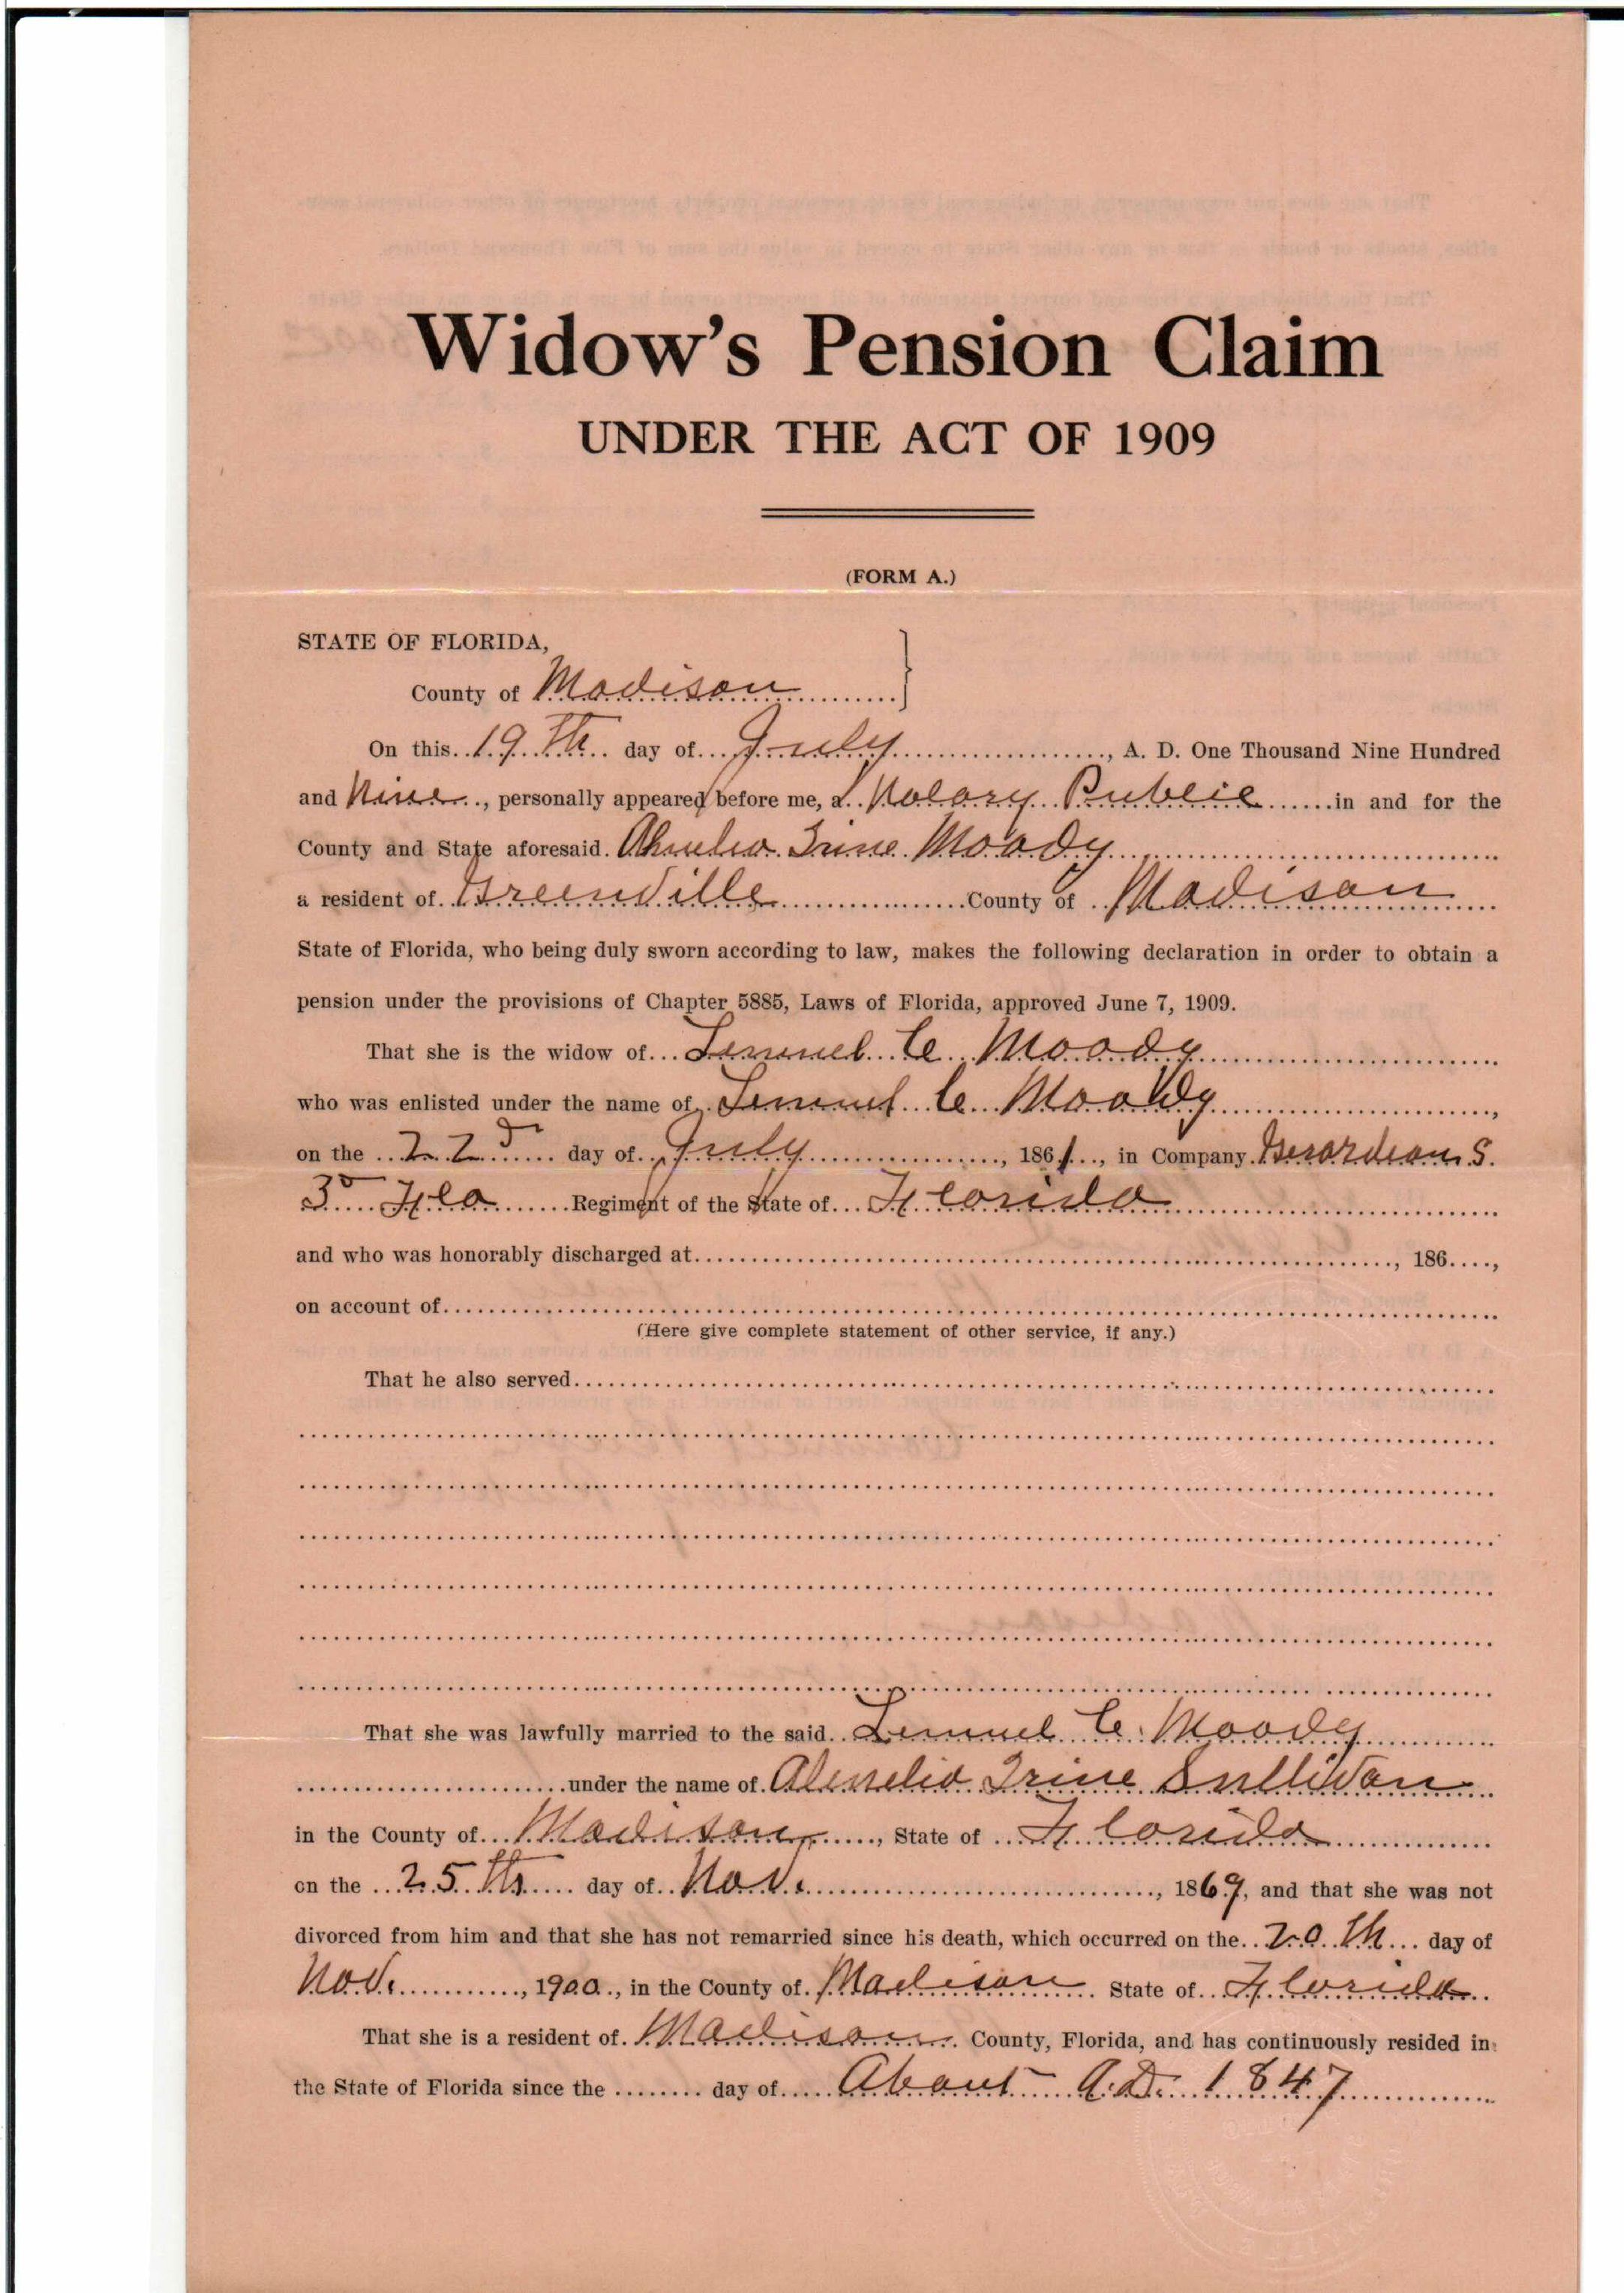 Widow's Pension Claim
UNDER THE ACT OF 1909
(FORM A.)
STATE OF FLORIDA,
County of Madison
On this 19th day of July, A. D. One Thousand Nine Hundred
and Nine, personally appeared before me, a Notary Public in and for the
County and State aforesaid. Moody
a resident of Greenville County of Madison
State of Florida, who being duly sworn according to law, makes the following declaration in order to obtain a
pension under the provisions of Chapter 5885, Laws of Florida, approved June 7, 1909.
That she is the widow of Lemuel C Moody
who was enlisted under the name of Lemuel C Moody,
on the 22d day of July, 1861, in Company Girardeau S.
3d Fla Regiment of the State of Florida
and who was honorably discharged at, 186,
on account of
(Here give complete statement of other service, if any.)
That he also served
That she was lawfully married to the said Lemuel C. Moody
under the name of Sullivan
in the County of Madison, State of Florida
on the 25th day of Nov., 1869, and that she was not
divorced from him and that she has not remarried since his death, which occurred on the 20th day of
Nov., 1900, in the County of Madison State of Florida
That she is a resident of Madison County, Florida, and has continuously resided in
the State of Florida since the day of About A.D. 1847